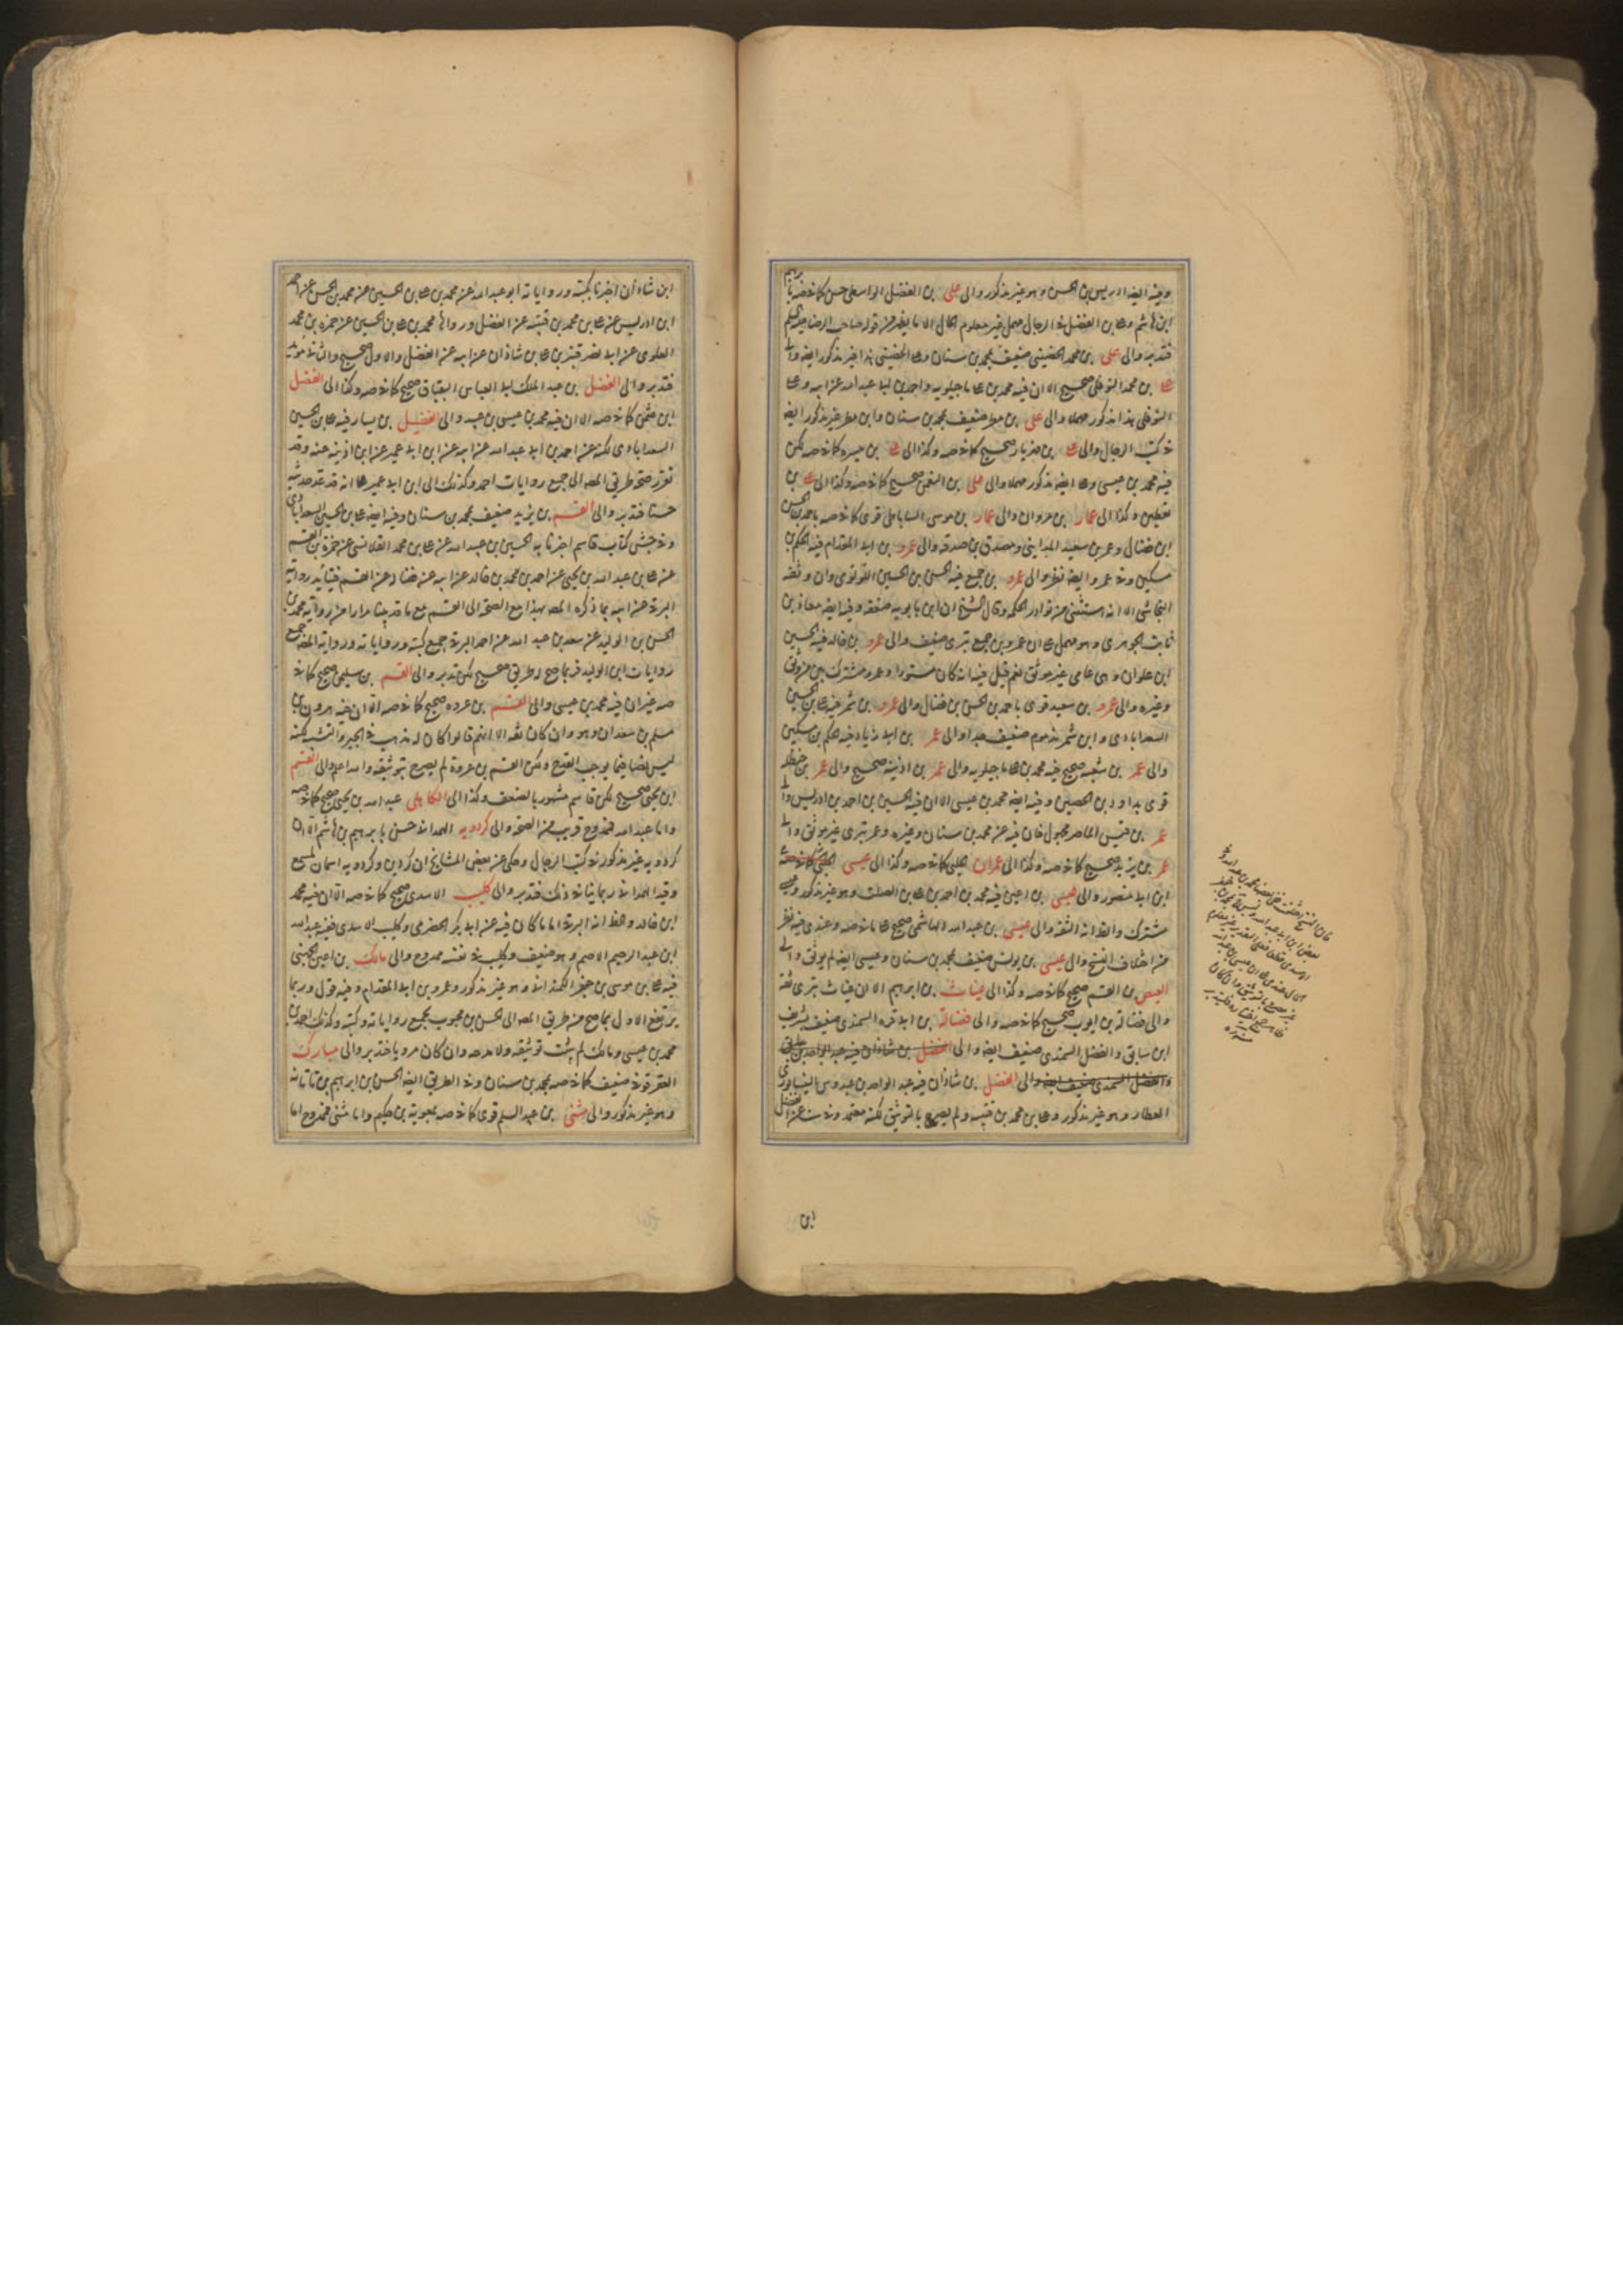 وفيه ايضا ادريس بن الحسن وهو غير مذكور والى على بن الفضل الواسطى حسن كما فى صه بابرهيم
ابن هاشم وعلى بن الفضل فى الرجال مهمل غير معلوم الحال الا ما يظهر من قوله صاحب الرضا عليه السلم
فتدبر والى على بن محمد الحضينى ضعيف بمحمد بن سنان وعلى الحضينى هذا غير مذكور ايضا والى
على بن محمد النوفلى صحيح الا ان فيه محمد بن على ماجيلويه واحمد بن ابى عبد الله عن ابيه وعلى
النوفلى هذا مذكور مهملا والى على بن مطر ضعيف بمحمد بن سنان وابن مطر غير مذكور ايضا
فى كتب الرجال والى على بن مهزيار صحيح كما فى صه وكذا الى على بن ميسره كما فى صه لكن
فيه محمد بن عيسى وعلى ايضا مذكور مهملا والى على بن النعمن صحيح كما فى صه وكذا الى على بن
يقطين وكذا الى عمار بن مروان والى عمار بن موسى الساباطى قوى كما فى صه باحمد بن الحسن
ابن فضال وعمرو بن سعيد المداينى ومصدق بن صدقه والى عمرو بن ابى المقدام فيه الحكم بن
مسكين وفى عمرو ايضا نظر والى عمرو بن جميع فيه الحسن بن الحسين اللؤلؤى وان وثقه
النجاشى الا انه مستثنى من نوادر الحكمه وقال الشيخ ان ابن بابويه ضعفه وفيه ايضا معاذ بن
ثابت الجوهرى وهو مهمل على ان عمرو بن جميع بترى ضعيف والى عمرو بن خالد فيه الحسين
ابن علوان وهى عامى غير موثق نعم قيل فيه انه كان مستورا وعمرو مشترك بين موثق
وغيره والى عمرو بن سعيد قوى باحمد بن الحسن بن فضال والى عمرو بن شمر فيه على بن الحسين
السعدابادى وابن شمر مذموم ضعيف جدا والى عمر بن ابى زياد فيه حكم بن مسكين
والى عمر بن شعبه صحيح فيه محمد بن على ماجيلويه والى عمر بن اذينه صحيح والى عمر بن حنظله
قوى بداود بن الحصين وفيه ايضا محمد بن عيسى الا ان فيه الحسين بن احمد بن ادريس والى
عمر بن قيس الماصر مجهول فان فيه عن محمد بن سنان وغيره وعمر بترى غير موثق والى
عمر بن يزيد صحيح كما فى صه وكذا الى عمران الحلبى كما فى صه وكذا الى عيسى
ابن ابى منصور والى عيسى بن اعين فيه محمد بن احمد بن على بن الصلت وهو غير مذكور وعيسى
مشترك والظ انه الثقه والى عيسى بن عبد الله الهاشمى صحيح على ما فى صه وعندى فيه نظر
من اختلاف النسخ والى عيسى بن يونس ضعيف بمحمد بن سنان وعيسى ايضا لم يوثق والى
العيص بن القسم صحيح كما فى صه وكذا الى غياث بن ابرهيم الا ان غياث بترى ثقه
والى فضالة بن ايوب صحيح كما فى صه والى فضالة بن ابى قره السمندى ضعيف بشريف
ابن سابق والفضل السمندى ضعيف ايضا والى الفضل بن شاذان فيه عبد الواحد بن
والفضل السمندى ضعيف ايضا والى الفضل بن شاذان فيه عبد الواحد بن عبدوس النيسابورى
العطار وهو غير مذكور وعلى بن محمد بن قتيبه ولم يصرح بالتوثيق لكنه معتمد وفى ست عن الفضل
ابن
ابن شاذان اخبرنا بكتبه ورواياته ابو عبد الله عن محمد بن على بن الحسين عن محمد بن الحسن عن احمد
ابن ادريس عن على بن محمد بن قتيبه عن الفضل ورواها محمد بن على بن الحسين عن حمزه بن محمد
العلوى عن ابى نصر قنبر بن على بن شاذان عن ابيه عن الفضل والاول صحيح والثانى
فتدبر والى الفضل بن عبد الملك ابى العباس البقباق صحيح كما فى صه وكذا الى الفضل
ابن عثمن كما فى صه الا ان فيه محمد بن عيسى بن عبيد والى الفضيل بن يسار فيه على بن الحسين
السعدابادى لكنه عن احمد بن ابى عبد الله عن ابيه عن ابن ابى عمير عن ابن اذينه عنه وقد
تقرر صحة طريق المصه الى جميع روايات احمد وكذلك الى ابن ابى عمير على انه قد عد حديثه
حسنا فتدبر والى القسم بن بريد ضعيف بمحمد بن سنان وفيه ايضا على بن الحسين السعدابادى
وفى جش كتاب قاسم اخبرنا به الحسين بن عبيد الله عن على بن محمد القلانسى عن حمزة بن القسم
عن على بن عبد الله بن يحيى عن احمد بن محمد بن خالد عن ابيه عن فضاله عن القسم فيتأيد رواية
البرقى عن ابيه بما ذكره المصه بهذا مع الصحة الى القسم مع ما قد بينا مرارا من رواية محمد بن
الحسن بن الوليد عن سعد بن عبد الله عن احمد البرقى جميع كتبه ورواياته ورواية المصه جميع
روايات ابن الوليد فربما صح له طريق صحيح لكن تدبر والى القسم بن سليمن صحيح كما فى
صه غير ان فيه محمد بن عيسى والى القسم بن عروه صحيح كما فى صه الا ان فيه هرون بن
مسلم بن سعدان وهو وان كان ثقه الا انهم قالوا كان له مذهب فى الجبر والتشبيه لكنه
ليس نصا فيما يوجب القدح ولكن القسم بن عروة لم يصرح بتوثيقه والله اعلم والى القسم
ابن يحيى صحيح لكن قاسم مشهور بالضعف وكذا الى الكاهلى عبد الله بن يحيى صحيح كما فى صه
واما عبد الله فممدوح قريب من الصحة والى كردويه الهمدانى حسن بابرهيم بن هاشم الا ان
كردويه غير مذكور فى كتب الرجال وحكى عن بعض المشايخ ان كردين وكردويه اسمان لمسمع
وقيد الهمدانى ربما ينافى ذلك فتدبر والى كليب الاسدى صحيح كما فى صه الا ان فيه محمد
ابن خالد والظ انه البرقى اما ما كان فيه عن ابى بكر الحضرمى وكليب الاسدى ففيه عبد الله
ابن عبد الرحيم الاصم وهو ضعيف وكليب فى نفسه ممدوح والى مالك بن اعين الجهنى
فيه على بن موسى بن جعفر الكمندانى وهو غير مذكور وعمرو بن ابى المقدام وفيه قول وربما
يرتفع الاول بما صح من طريق المصه الى الحسن بن محبوب بجميع رواياته وكتبه وكذلك احمد بن
محمد بن عيسى ومالك لم يثبت توثيقه ولا مدحه وان كان مرويا فتدبر والى مبارك
العقرقوفى ضعيف كما فى صه بمحمد بن سنان وفى الطريق ايضا الحسين بن ابرهيم بن تاتانه
وهو غير مذكور والى مثنى بن عبد السلم قوى كما فى صه بمعوية بن حكيم واما مثنى فممدوح اما